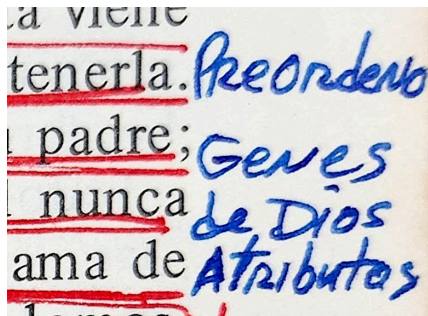 ta viene
tenerla. Preordeno
padre;
Genes
nunca
de Dios
ama de Atributos